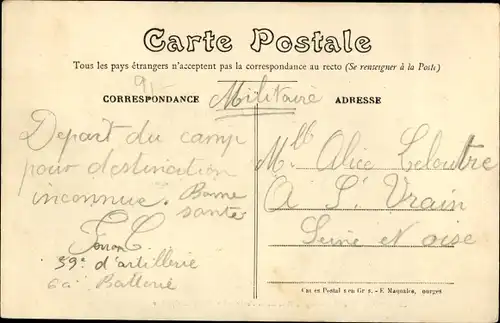 Carte Postale
Tous les pays étrangers n'acceptent pas la correspondance au recto (Se renseigner à la Poste)
91
CORRESPONDANCE
Militaire
ADRESSE
Depart du camp
pour destination
inconnue. Bonne
santé
39e d'artillerie
Batterie
Mlle Alice Leloutre
A St Vrain
Seine et Oise
E. Maquaire,